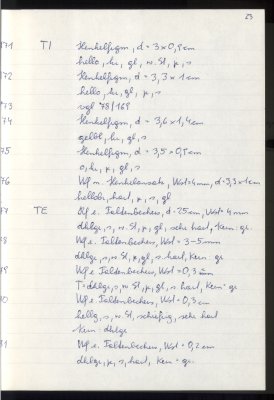 23
171 TI Henkelfrgm, d = 3 x 0,9 cm
hello, hi, gl, w. St, g, s
172 Henkelfrgm, d = 3,3 x 1 cm
hello, hi, gl, g, s
173 vgl 78/169
174 Henkelfrgm, d = 3,6 x 1,4 cm
gelbl, hi, gl, s
175 Henkelfrgm, d = 3,5 x 0,9 cm
o, hi, g, gl, s
76 Wf m. Henkelansatz, Wst = 4mm, d = 3,3 x 1 cm
hellobr, hart, g, s, gl
77 TE Rf e. Faltenbechers, d = 25 cm, Wst = 4 mm
dklgr, s, w. St, g, gl, sehr hart, Kern = gr.
78 Wf e. Faltenbechers, Wst = 3-5 mm
dklgr, s, w. St, g, gl, s. hart, Kern = gr
79 Wf e. Faltenbechers, Wst = 0,3 cm
T = dklgr, s, w St, g, gl, s. hart, Kern = gr
80 Wf e. Faltenbechers, Wst = 0,3 cm
hellg, s, w. St, schiefrig, sehr hart
Kern = dklgr
81 Wf e. Faltenbechers, Wst = 0,2 cm
dklgr, g, s, hart, Kern = gr